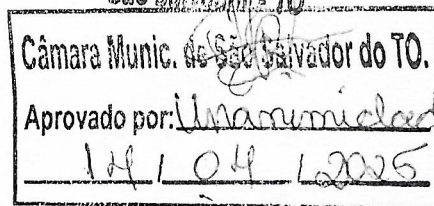 Câmara Munic. de São Salvador do TO.
Aprovado por: Unanimidad
14 / 04 / 2025